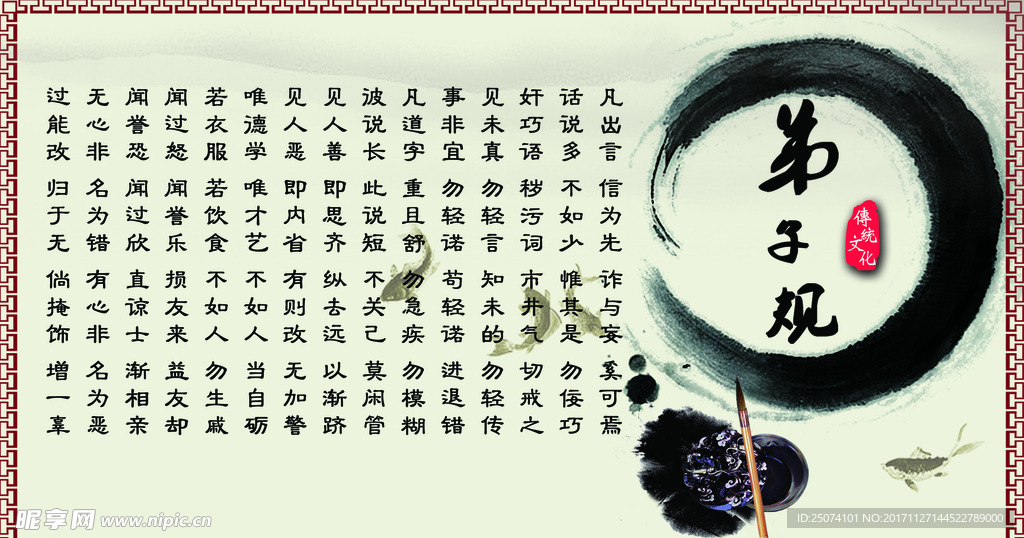 弟子规
傳統
文化
凡出言 信为先 诈与妄 奚可焉
话说多 不如少 惟其是 勿佞巧
奸巧语 秽污词 市井气 切戒之
见未真 勿轻言 知未的 勿轻传
事非宜 勿轻诺 苟轻诺 进退错
凡道字 重且舒 勿急疾 勿模糊
彼说长 此说短 不关己 莫闲管
见人善 即思齐 纵去远 以渐跻
见人恶 即内省 有则改 无加警
唯德学 唯才艺 不如人 当自砺
若衣服 若饮食 不如人 勿生戚
闻过怒 闻誉乐 损友来 益友却
闻誉恐 闻过欣 直谅士 渐相亲
无心非 名为错 有心非 名为恶
过能改 归于无 倘掩饰 增一辜
昵享网 www.nipic.cn
ID:25074101 NO:20171127144522789000